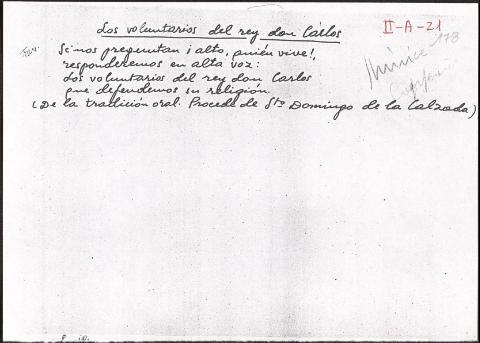 Los voluntarios del rey don Cárlos
II-A-21
173
Si nos preguntan ¡alto, quién vive!,
responderemos en alta voz:
Los voluntarios del rey don Carlos
que defendemos su religión.
(De la tradición oral. Procede de Stº Domingo de la Calzada)